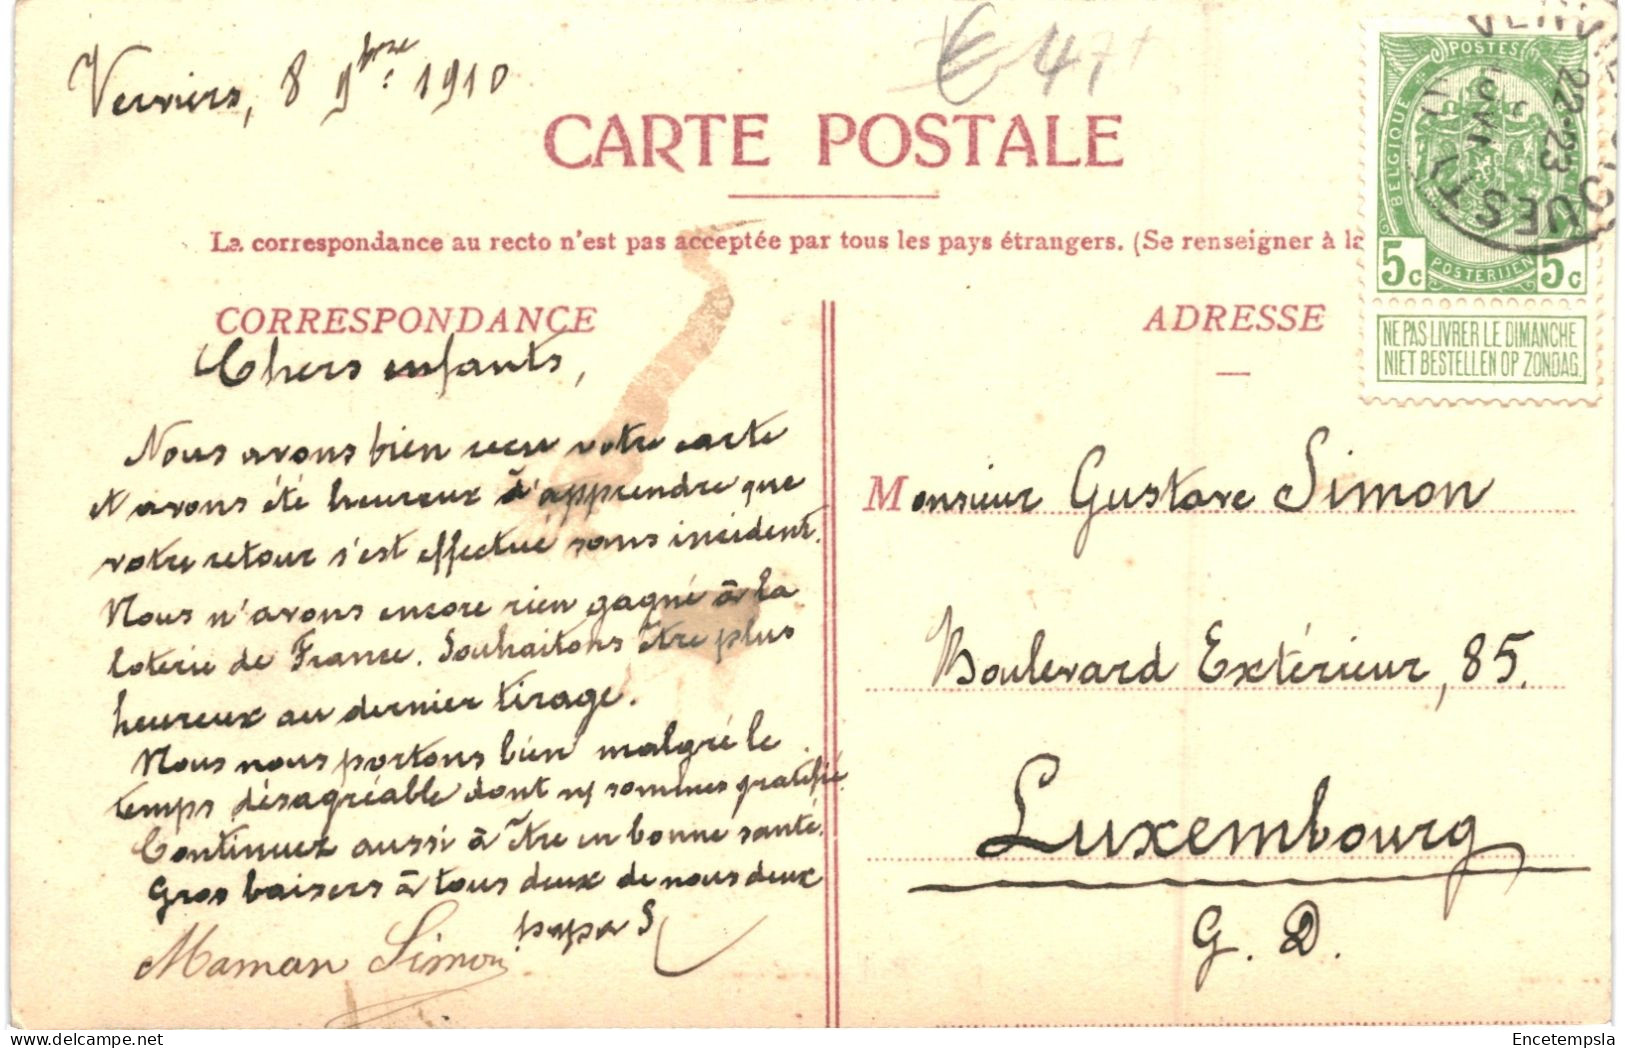 Verviers, 8 9bre 1910
€ 47
CARTE POSTALE
La correspondance au recto n'est pas acceptée par tous les pays étrangers. (Se renseigner à la
POSTES
BELGIQUE
5c POSTERIJEN 5c
NE PAS LIVRER LE DIMANCHE
NIET BESTELLEN OP ZONDAG.
22-23
OUEST
CORRESPONDANCE
Chers enfants,
Nous avons bien recu votre carte
et avons été heureux d'apprendre que
votre retour s'est effectué sans incident.
Nous n'avons encore rien gagné à la
loterie de France. Souhaitons être plus
heureux au dernier tirage.
Nous nous portons bien malgré le
temps désagréable dont ns sommes gratifié.
Continuez aussi à être en bonne santé.
Gros baisers à tous deux de nous deux
papa S
Maman Simon
ADRESSE
Monsieur Gustave Simon
Boulevard Extérieur, 85.
Luxembourg
G. D.
Encetempsla